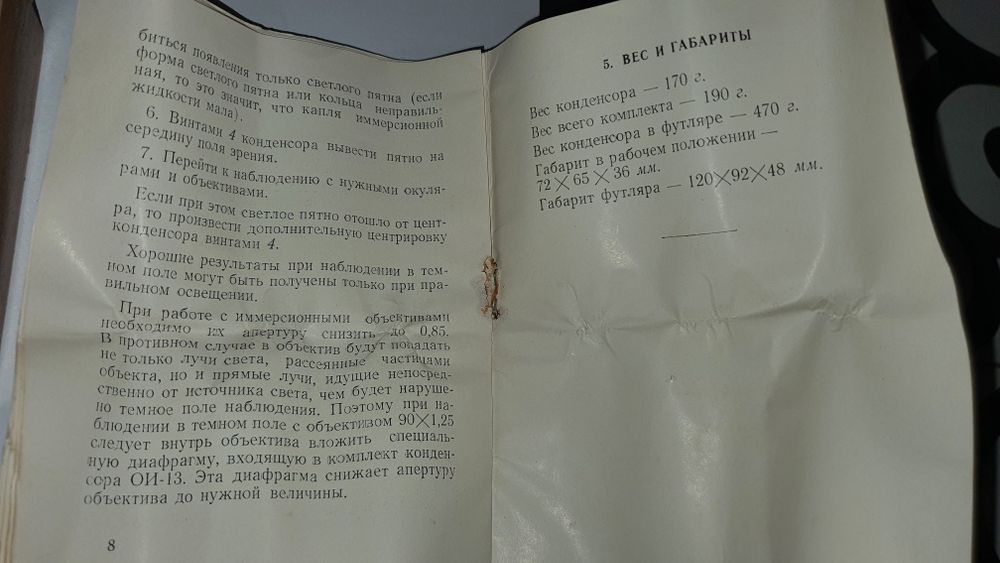 биться появления только светлого пятна (если
форма светлого пятна или кольца неправиль-
ная, то это значит, что капля иммерсионной
жидкости мала).
6. Винтами 4 конденсора вывести пятно на
середину поля зрения.
7. Перейти к наблюдению с нужными окуля-
рами и объективами.
Если при этом светлое пятно отошло от цент-
ра, то произвести дополнительную центрировку
конденсора винтами 4.
Хорошие результаты при наблюдении в тем-
ном поле могут быть получены только при пра-
вильном освещении.
При работе с иммерсионными объективами
необходимо их апертуру снизить до 0,85.
В противном случае в объектив будут попадать
не только лучи света, рассеянные частицами
объекта, но и прямые лучи, идущие непосред-
ственно от источника света, чем будет наруше-
но темное поле наблюдения. Поэтому при на-
блюдении в темном поле с объективом 90×1,25
следует внутрь объектива вложить специаль-
ную диафрагму, входящую в комплект конден-
сора ОИ-13. Эта диафрагма снижает апертуру
объектива до нужной величины.
8
5. ВЕС И ГАБАРИТЫ
Вес конденсора — 170 г.
Вес всего комплекта — 190 г.
Вес конденсора в футляре — 470 г.
Габарит в рабочем положении —
72×65×36 мм.
Габарит футляра — 120×92×48 мм.